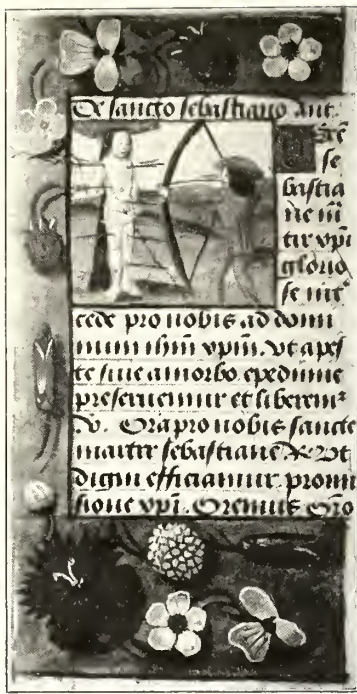 De sancto sebastiano Ant
Egre
se
bastia
ne m̄
tir xp̄i
glorio
se int̄
cede pro nobis ad domi
num ih̄m xp̄m. vt a pes
te siue a morbo epedimie
preseruemur et liberem²
V. Ora pro nobis sancte
martir sebastiane R Vt
digni efficiamur promi
sione xp̄i. Oremus Oro